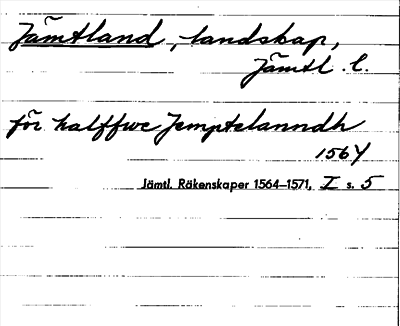 Jämtland, landskap,
Jämtl. l.
för halffwe Jemptelanndh
1564
Jämtl. Räkenskaper 1564–1571, I s. 5